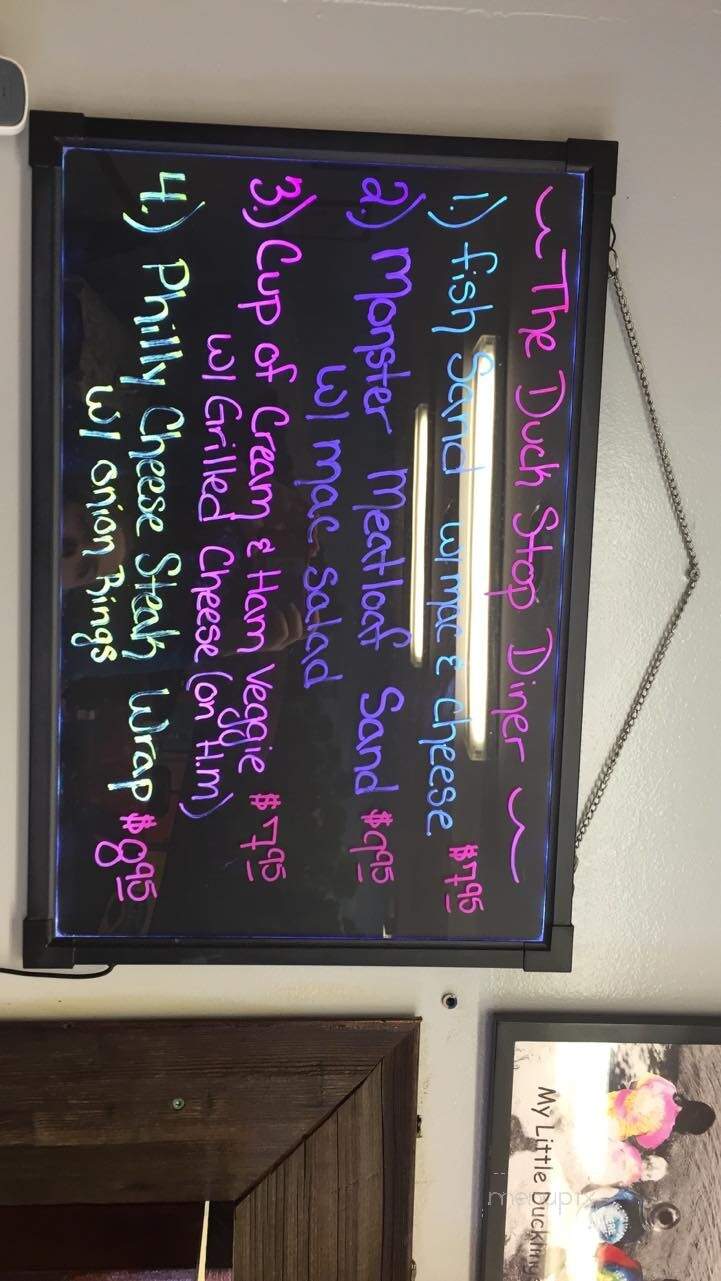 ~ The Duck Stop Diner ~
1.) fish Sand w/ mac & cheese $7.95
2.) Monster Meatloaf Sand $9.95
w/ mac salad
3.) Cup of Cream & Ham Veggie $7.95
w/ Grilled Cheese (on H.m)
4.) Philly Cheese Steak Wrap $8.95
w/ onion Rings
My Little Duckling
menupix